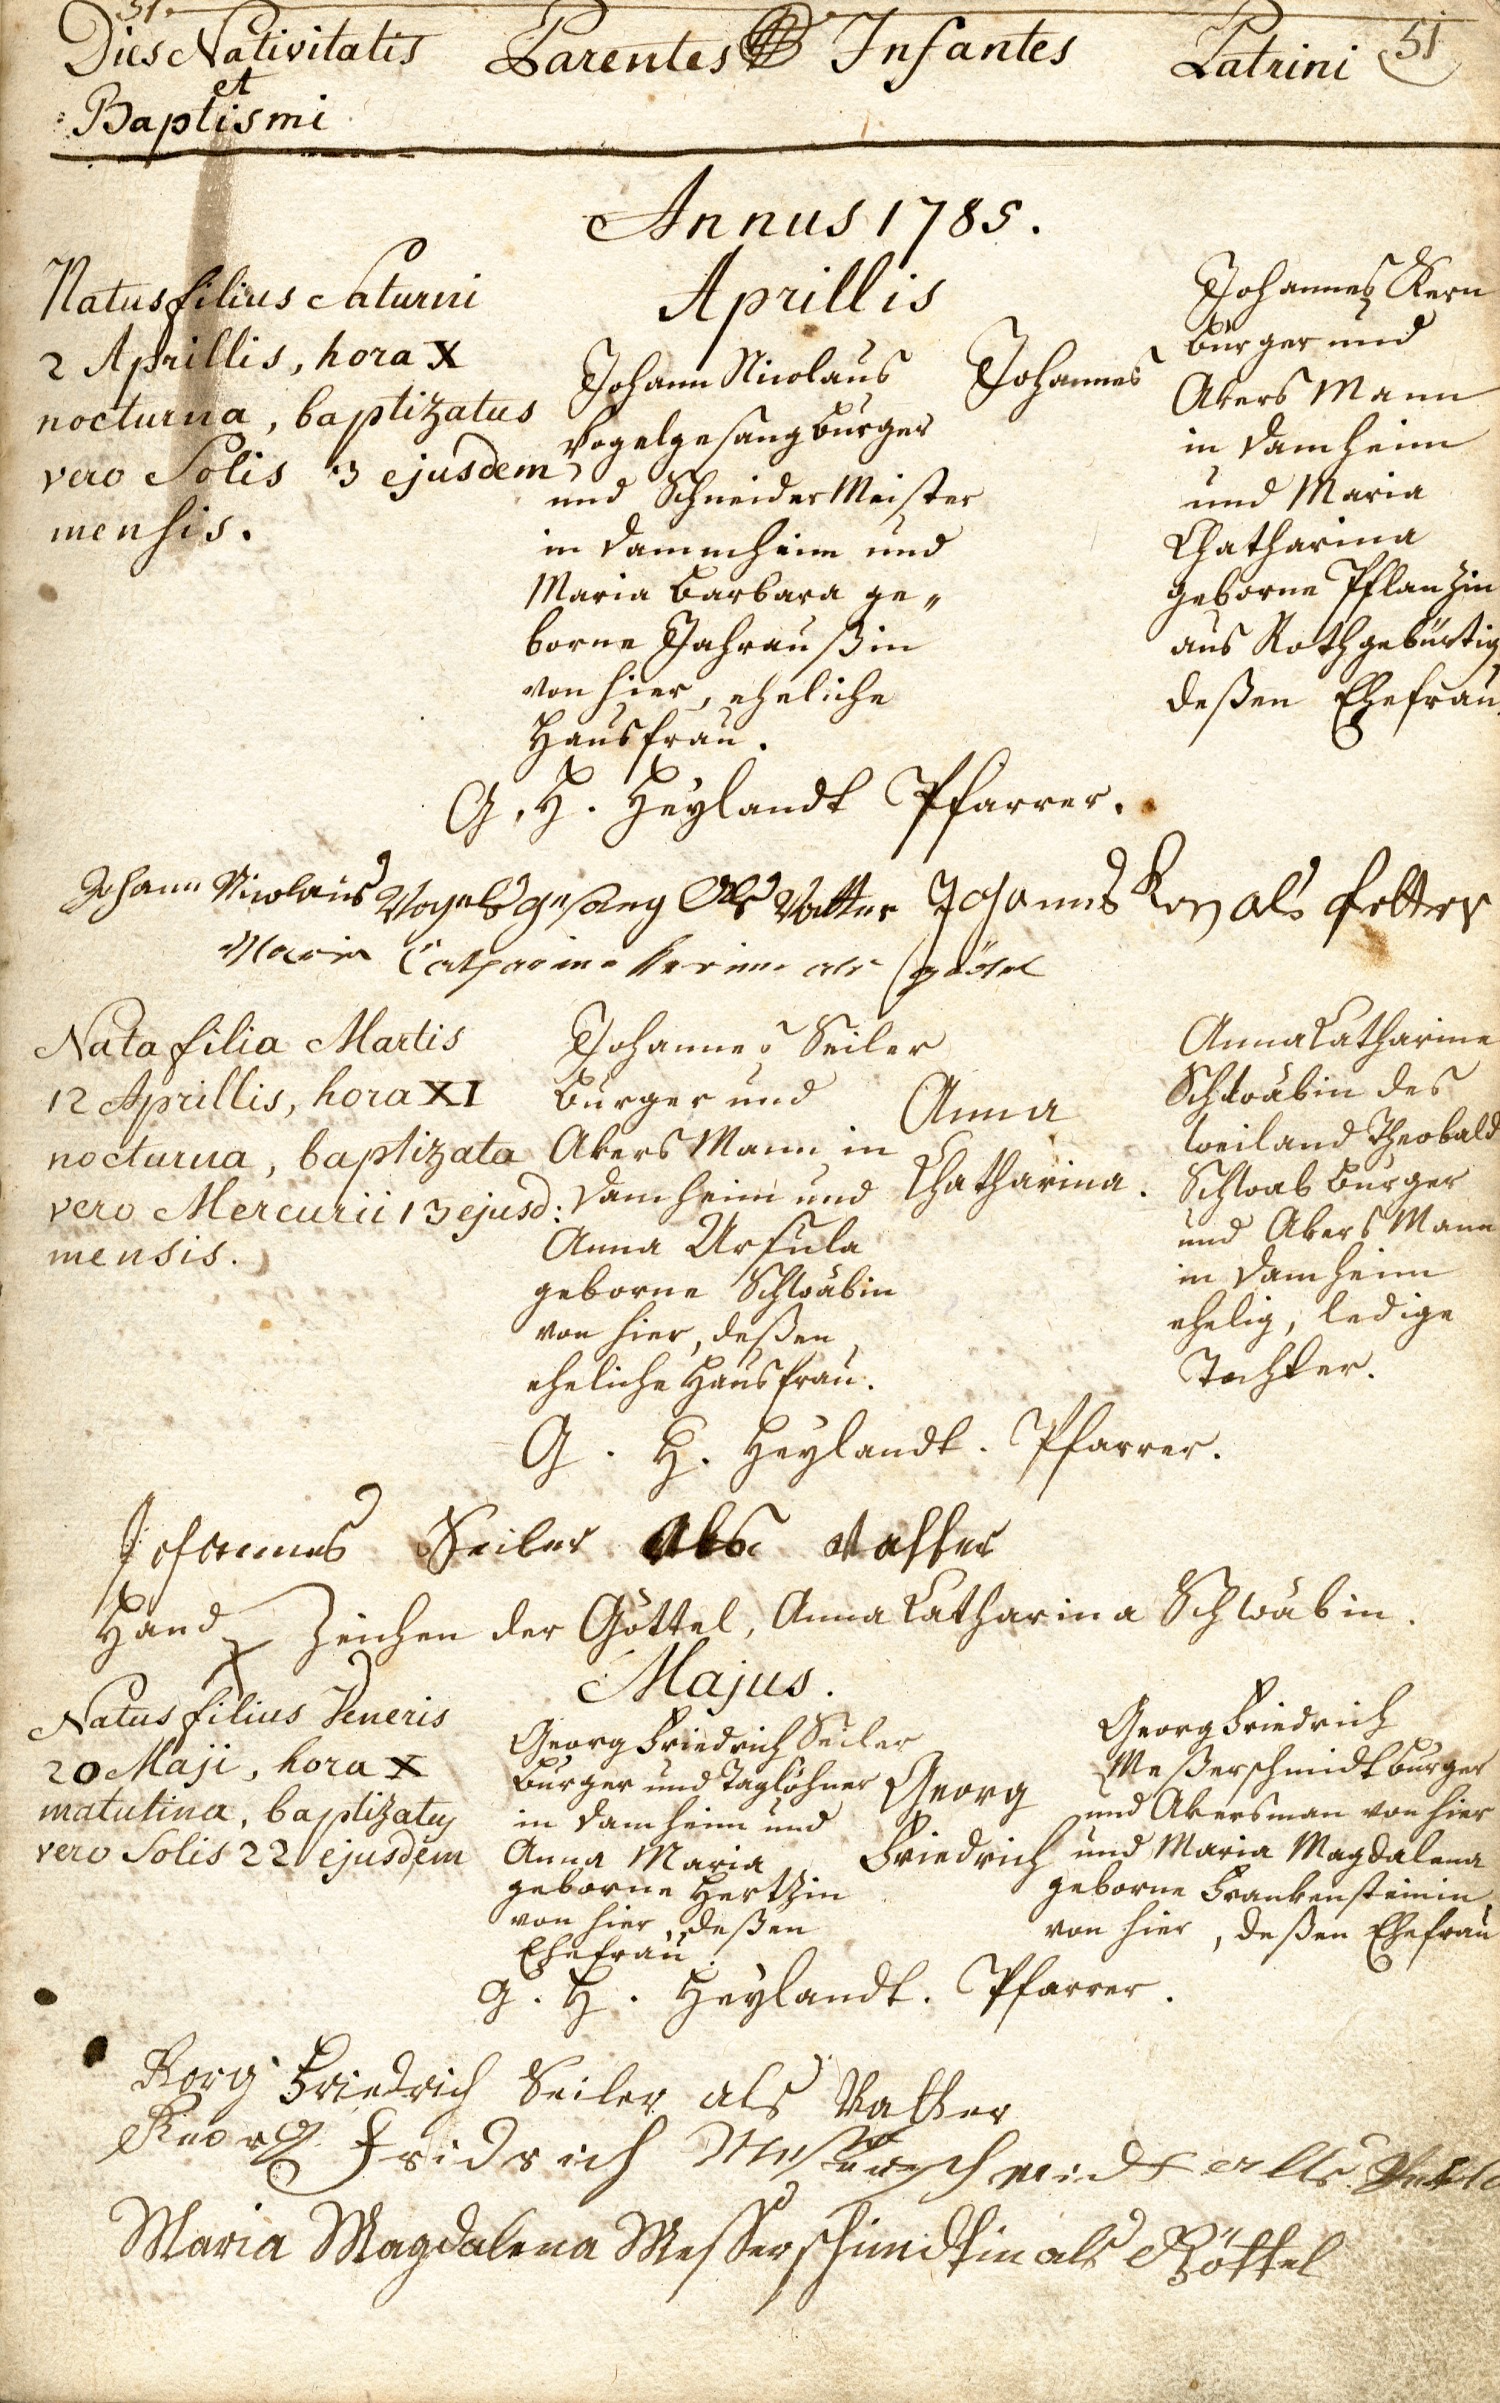 51.
Dies Nativitatis
et
Baptismi
Parentes
Infantes
Patrini
51
Annus 1785.
Aprillis
Natus filius Saturni
2 Aprillis, hora X
nocturna, baptizatus
vero Solis 3 ejusdem
mensis.
Johann Nicolaus
Vogelgesang burger
und Schneider Meister
in Dammheim und
Maria Barbara ge„
borne Jahraußin
von hier, eheliche
Hausfrau.
Johannes
Johannes Kern
burger und
Akers Mann
in Damheim
und Maria
Chatharina
geborne Pflantzin
aus Roth gebürtig
deßen Ehefrau.
G. H. Heylandt Pfarrer.
Johann Nicolaus Vogelsgesang Als Vatter Johannes Kern als fetter
Maria Catharina Kerinn als
Nata filia Martis
12 Aprillis, hora XI
nocturna, baptizata
vero Mercurii 13 ejusd:
mensis.
Johannes Seiler
burger und
Akers Mann in
Damheim und
Anna Ursula
geborne Schwäbin
von hier, deßen
eheliche Hausfrau.
Anna
Chatharina.
Anna Catharine
Schwäbin des
weiland Theobald
Schwab burger
und Akers Mann
in Damheim
ehelig, ledige
Tochter.
G. H. Heylandt. Pfarrer.
Johannes Seiler als Vatter
Hand X Zeichen der Göttel, Anna Catharina Schwäbin.
Majus.
Natus filius Veneris
20 Maji, hora X
matutina, baptizatus
vero Solis 22 ejusdem
Georg Friedrich Seiler
burger und Taglöhner
in Damheim und
Anna Maria
geborne Hertzin
von hier, deßen
Ehefrau.
Georg
Friedrich
Georg Friedrich
Meßerschmidt burger
und Akersman von hier
und Maria Magdalena
geborne Frankensteinin
von hier, deßen Ehefrau
G. H. Heylandt. Pfarrer.
Gorg Friedrich Seiler als Vatter
Fridrich
Maria Magdalena Messerschmidtin als Göttel